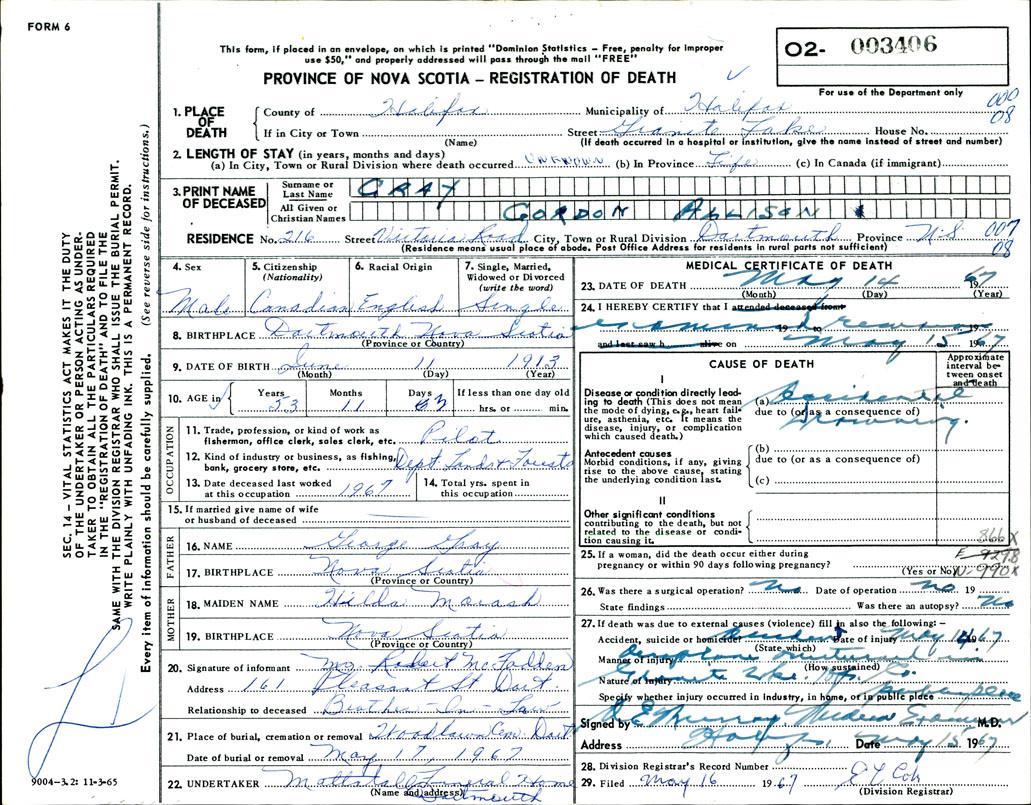 FORM 6
This form, if placed in an envelope, on which is printed "Dominion Statistics – Free, penalty for improper
use $50," and properly addressed will pass through the mail "FREE"
PROVINCE OF NOVA SCOTIA – REGISTRATION OF DEATH
O2- 003406
For use of the Department only
000
08
1. PLACE OF DEATH
County of Halifax Municipality of Halifax
If in City or Town Street Granite Lake House No.
(Name) (If death occurred in a hospital or institution, give the name instead of street and number)
2. LENGTH OF STAY (in years, months and days)
(a) In City, Town or Rural Division where death occurred UNKNOWN (b) In Province Life (c) In Canada (if immigrant)
3. PRINT NAME OF DECEASED
Surname or Last Name GRAY
All Given or Christian Names GORDON ALLISON
RESIDENCE No. 216 Street Victoria Road City, Town or Rural Division Dartmouth Province N.S.
007
08
(Residence means usual place of abode. Post Office Address for residents in rural parts not sufficient)
4. Sex Male
5. Citizenship (Nationality) Canadian
6. Racial Origin English
7. Single, Married, Widowed or Divorced (write the word) Single
8. BIRTHPLACE Dartmouth Nova Scotia
(Province or Country)
9. DATE OF BIRTH June 11 1913
(Month) (Day) (Year)
10. AGE in Years 53 Months 11 Days 3 If less than one day old
hrs. or min.
OCCUPATION
11. Trade, profession, or kind of work as
fisherman, office clerk, sales clerk, etc. Pilot
12. Kind of industry or business, as fishing,
bank, grocery store, etc. Dept Lands & Forests
13. Date deceased last worked
at this occupation 1967
14. Total yrs. spent in
this occupation
15. If married give name of wife
or husband of deceased
FATHER
16. NAME George Gray
17. BIRTHPLACE Nova Scotia
(Province or Country)
MOTHER
18. MAIDEN NAME Hilda
19. BIRTHPLACE Nova Scotia
(Province or Country)
20. Signature of informant Mr. Robert McFadden
Address 161 Pleasant St Dart.
Relationship to deceased Brother-In-Law
21. Place of burial, cremation or removal Woodlawn Cem Dart
Date of burial or removal May 17, 1967
22. UNDERTAKER Mattatall Funeral Home
(Name and address) Dartmouth
MEDICAL CERTIFICATE OF DEATH
23. DATE OF DEATH May 14 1967
(Month) (Day) (Year)
24. I HEREBY CERTIFY that I attended deceased from
examined remains 19 to 19
and last saw h alive on May 15 1967
CAUSE OF DEATH
Approximate interval between onset and death
I
Disease or condition directly leading to death (This does not mean
the mode of dying, e.g., heart failure, asthenia, etc. It means the
disease, injury, or complication
which caused death.)
(a) Accidental
due to (or as a consequence of)
Drowning.
Antecedent causes
Morbid conditions, if any, giving
rise to the above cause, stating
the underlying condition last.
(b)
due to (or as a consequence of)
(c)
II
Other significant conditions
contributing to the death, but not
related to the disease or condition causing it.
866X
E 9298
N-990X
25. If a woman, did the death occur either during
pregnancy or within 90 days following pregnancy? (Yes or No)
26. Was there a surgical operation? No Date of operation no 19
State findings Was there an autopsy? No
27. If death was due to external causes (violence) fill in also the following: –
Accident, suicide or homicide Accident Date of injury May 14 1967
(State which)
Manner of injury Aeroplane overturned in
(How sustained)
Nature of injury Granite Lake. Hfx. Co.
Specify whether injury occurred in industry, in home, or in public place
Signed by Murray Medical Examiner M.D.
Address Halifax Date May 15 1967
28. Division Registrar's Record Number
29. Filed May 16 1967
(Division Registrar)
SEC. 14 – VITAL STATISTICS ACT MAKES IT THE DUTY
OF THE UNDERTAKER OR PERSON ACTING AS UNDERTAKER TO OBTAIN ALL THE PARTICULARS REQUIRED
IN THE "REGISTRATION OF DEATH" AND TO FILE THE
SAME WITH THE DIVISION REGISTRAR WHO SHALL ISSUE THE BURIAL PERMIT.
WRITE PLAINLY WITH UNFADING INK. THIS IS A PERMANENT RECORD.
Every item of information should be carefully supplied. (See reverse side for instructions.)
9004-3.2: 11-3-65